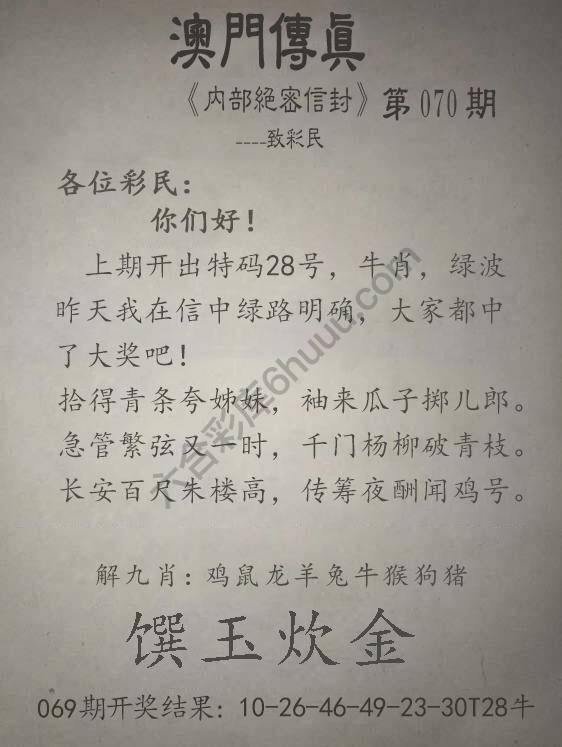 澳門傳真
《内部絕密信封》第070期
----致彩民
各位彩民：
你们好！
上期开出特码28号，牛肖，绿波
昨天我在信中绿路明确，大家都中
了大奖吧！
拾得青条夸姊妹，袖来瓜子掷儿郎。
急管繁弦又一时，千门杨柳破青枝。
长安百尺朱楼高，传筹夜酬闻鸡号。
六合彩库6huuu.com
解九肖：鸡鼠龙羊兔牛猴狗猪
馔玉炊金
069期开奖结果：10-26-46-49-23-30T28牛